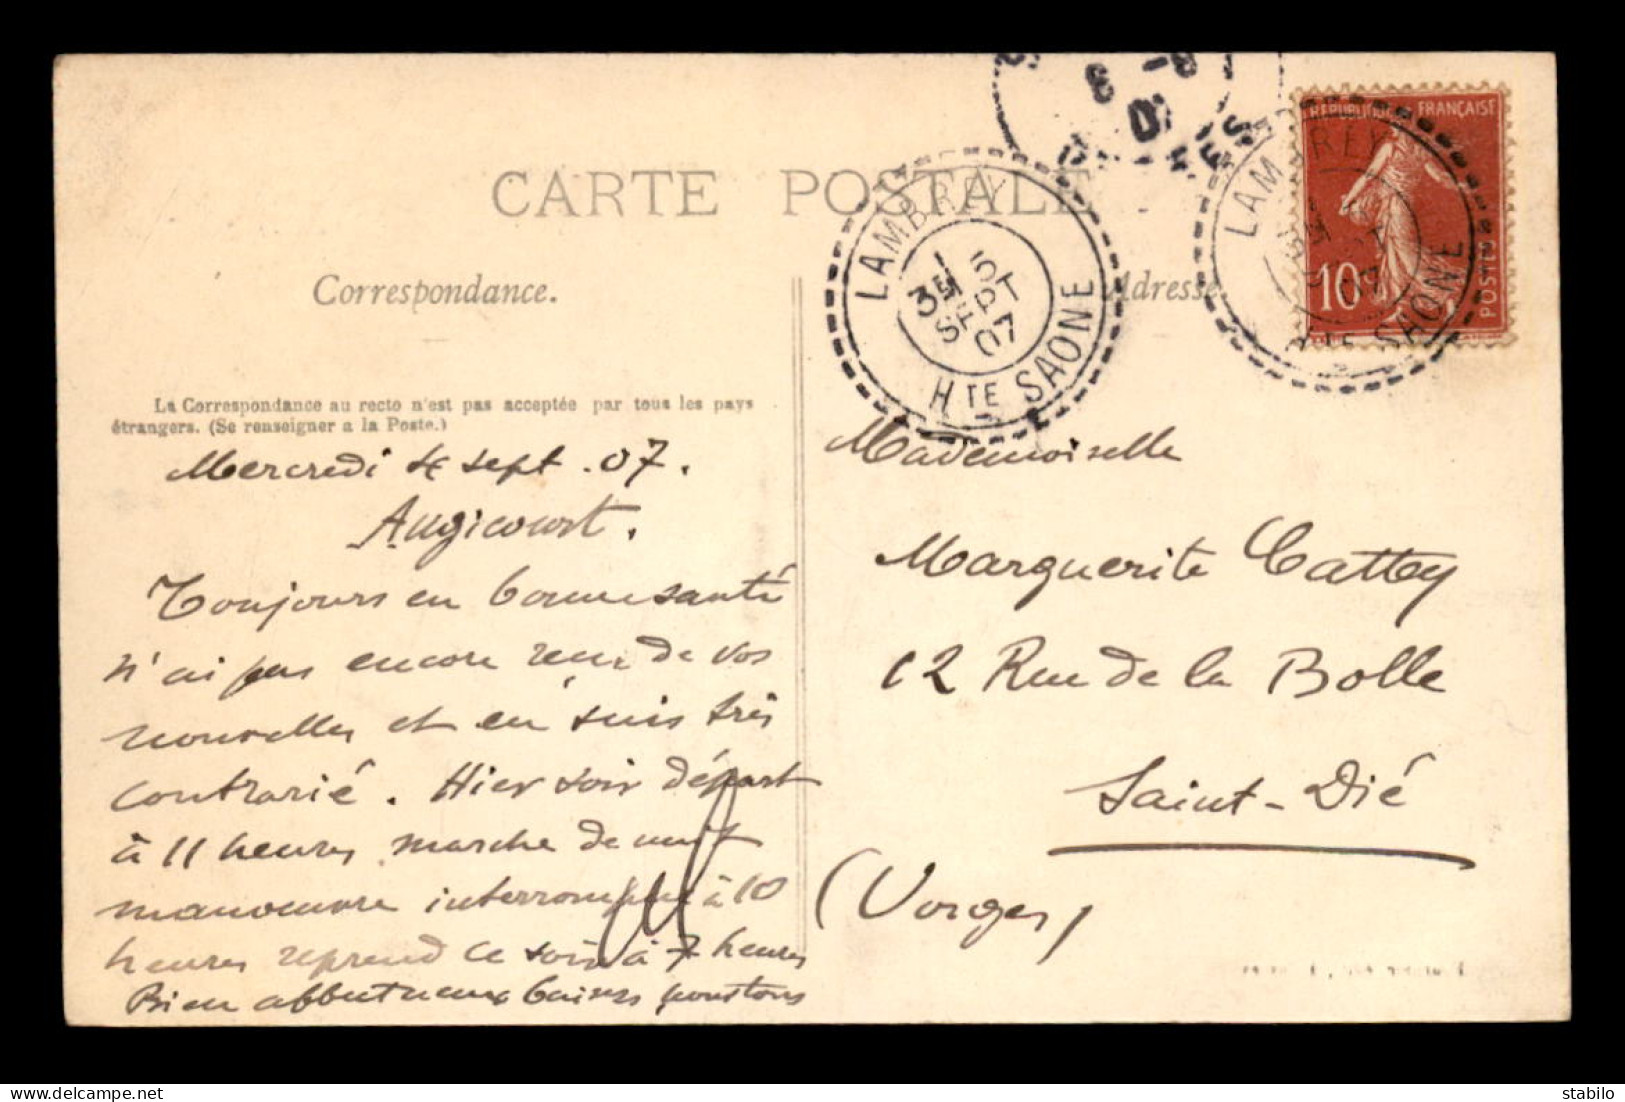 CARTE POSTALE
Correspondance.
Adresse
La Correspondance au recto n'est pas acceptée par tous les pays
étrangers. (Se renseigner a la Poste.)
Mercredi 4 sept. 07.
Augicourt.
Toujours en bonne santé
n'ai pas encore reçu de vos
nouvelles et en suis très
contrarié. Hier soir départ
à 11 heures marche de nuit
manoeuvre interrompue à 10
heures reprend ce soir à 7 heures
Bien affectueux baisers pour tous
Mademoiselle
Marguerite Cattey
12 Rue de la Bolle
Saint-Dié
(Vosges)
LAMBREY
5
SEPT
07
Hte SAONE
REPUBLIQUE FRANÇAISE
10
POSTES
LAMBREY
Hte SAONE
stabilo